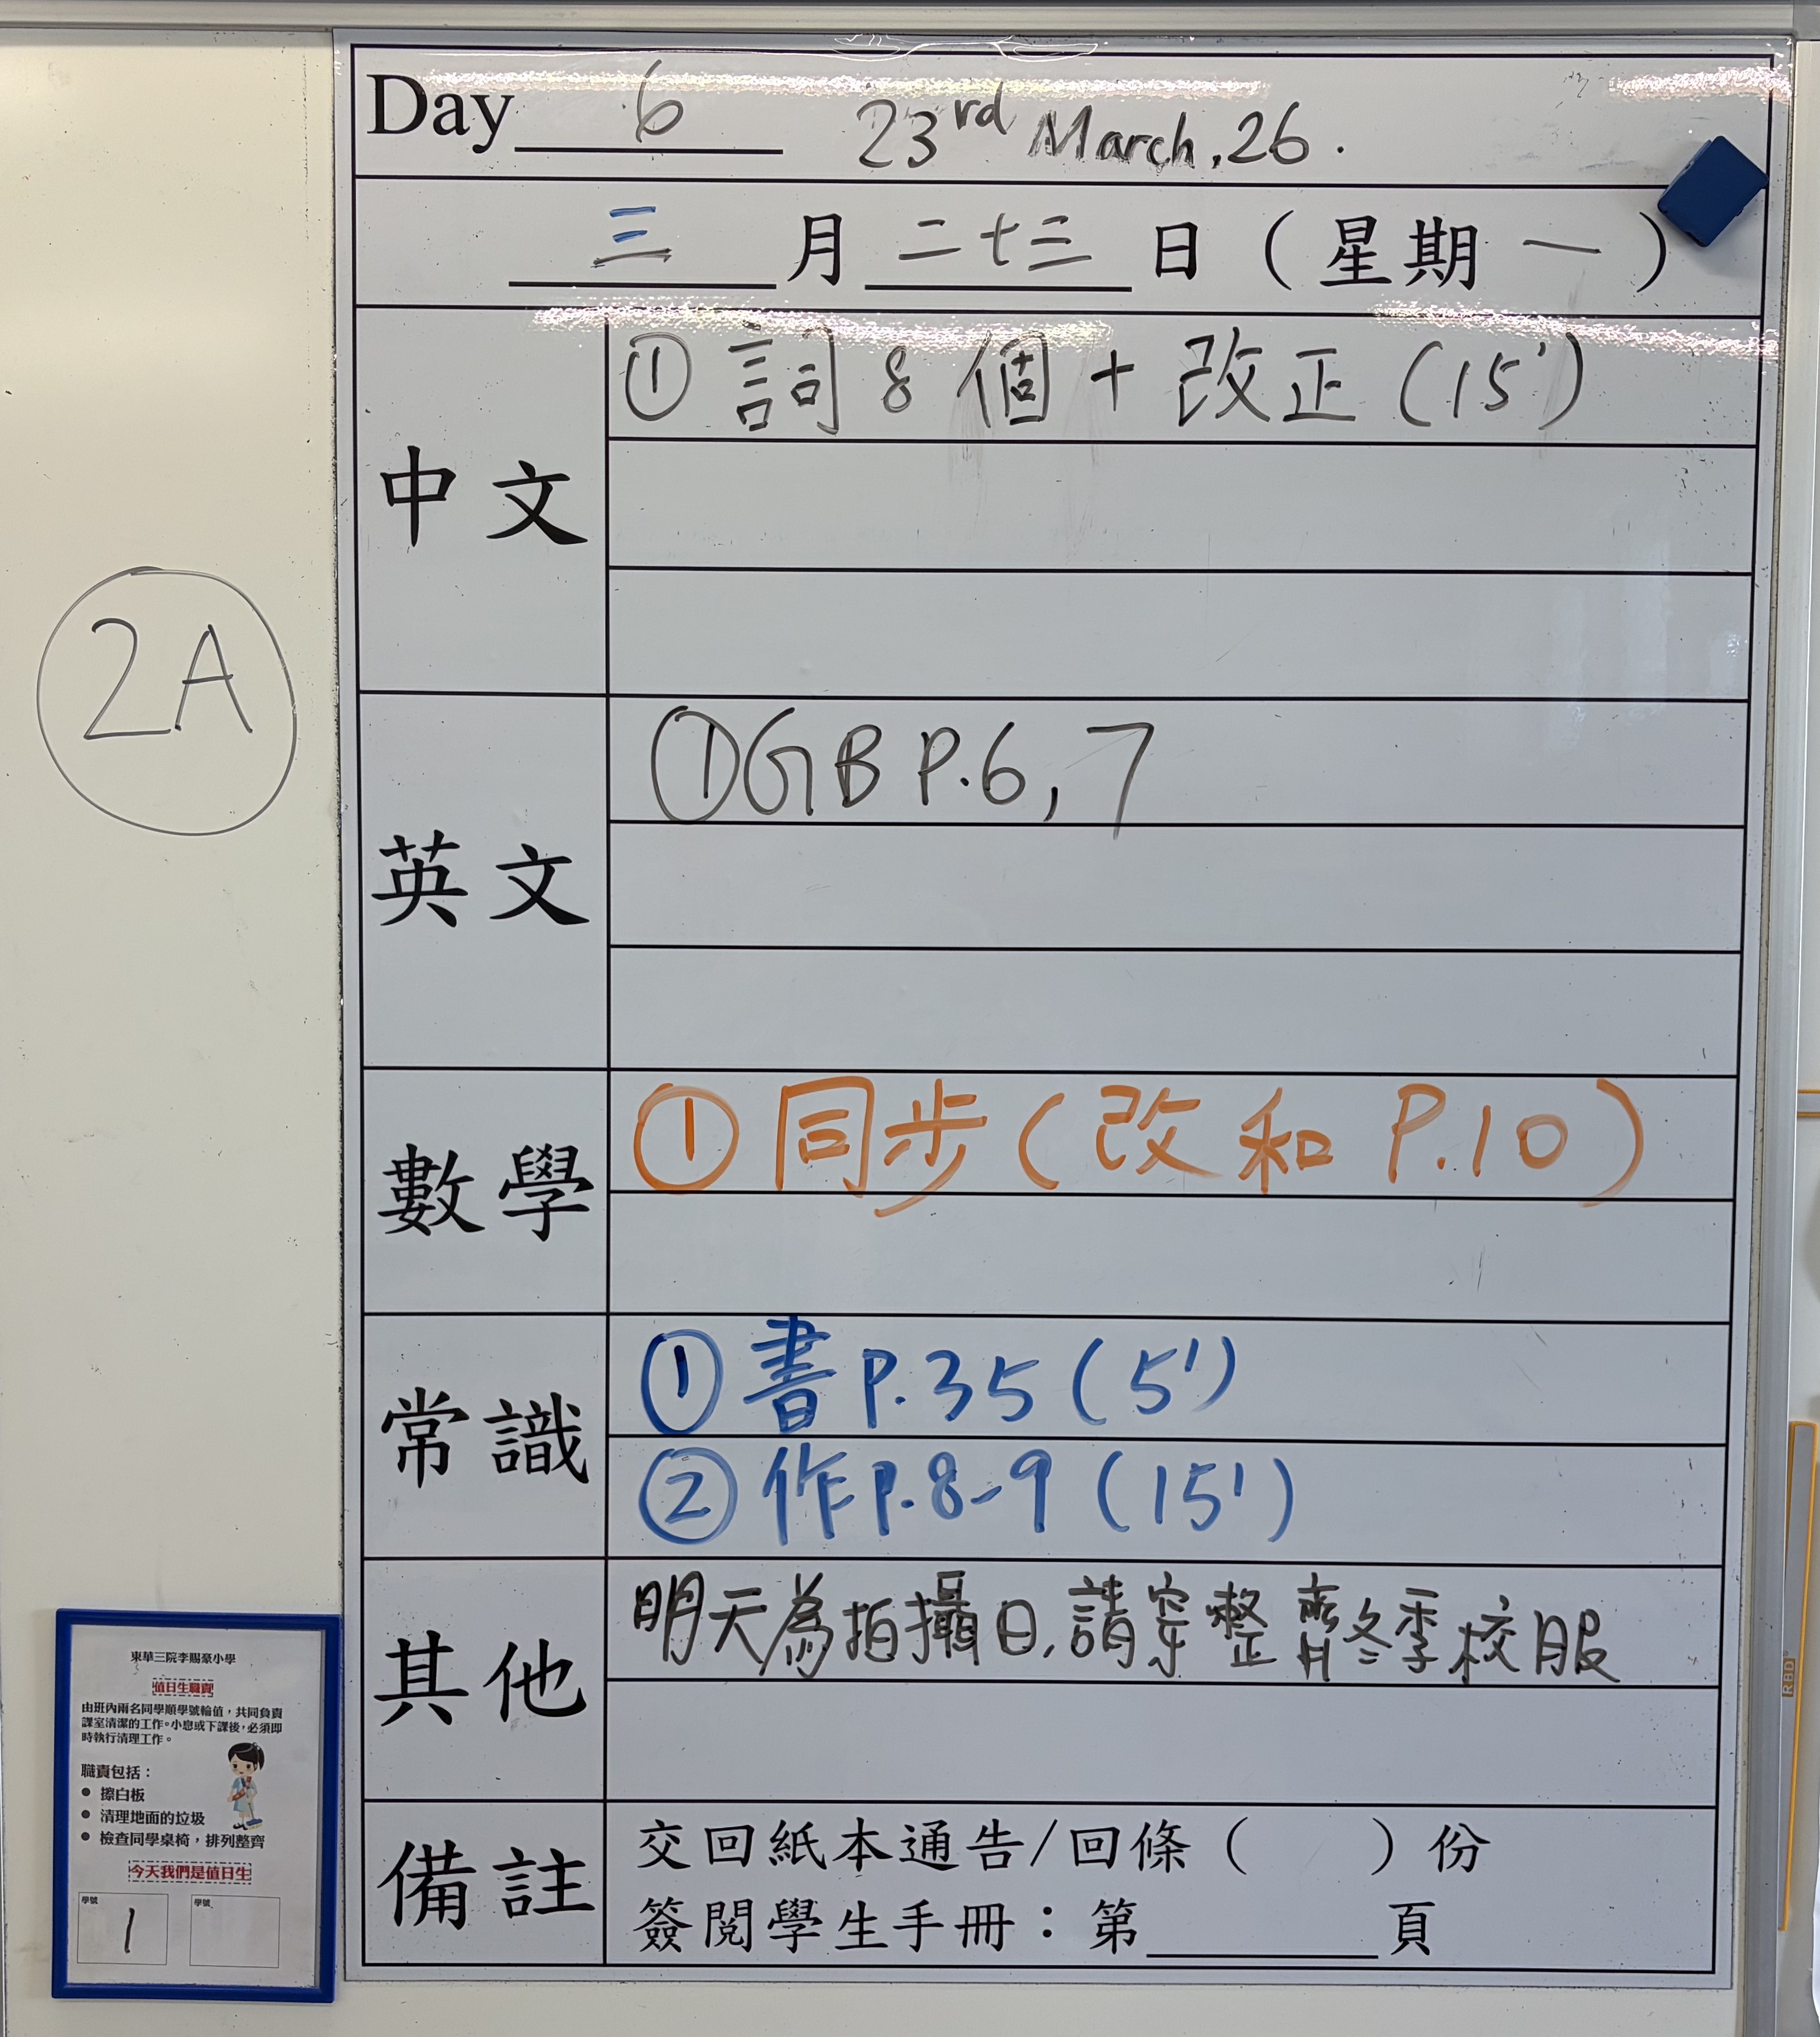 Day 6 23rd March, 26.
三月二十三日（星期一）
中文
① 詞8個+改正(15')
英文
① GB P.6, 7
數學
① 同步(改和P.10)
常識
① 書P.35(5')
② 作P.8-9(15')
其他
明天為拍攝日,請穿整齊冬季校服
備註
交回紙本通告/回條（　）份
簽閱學生手冊：第______頁
2A
東華三院李賜豪小學
值日生職責
由班內兩名同學順學號輪值，共同負責
課室清潔的工作。小息或下課後，必須即
時執行清理工作。
職責包括：
● 擦白板
● 清理地面的垃圾
● 檢查同學桌椅，排列整齊
今天我們是值日生
學號 學號
1
RBD